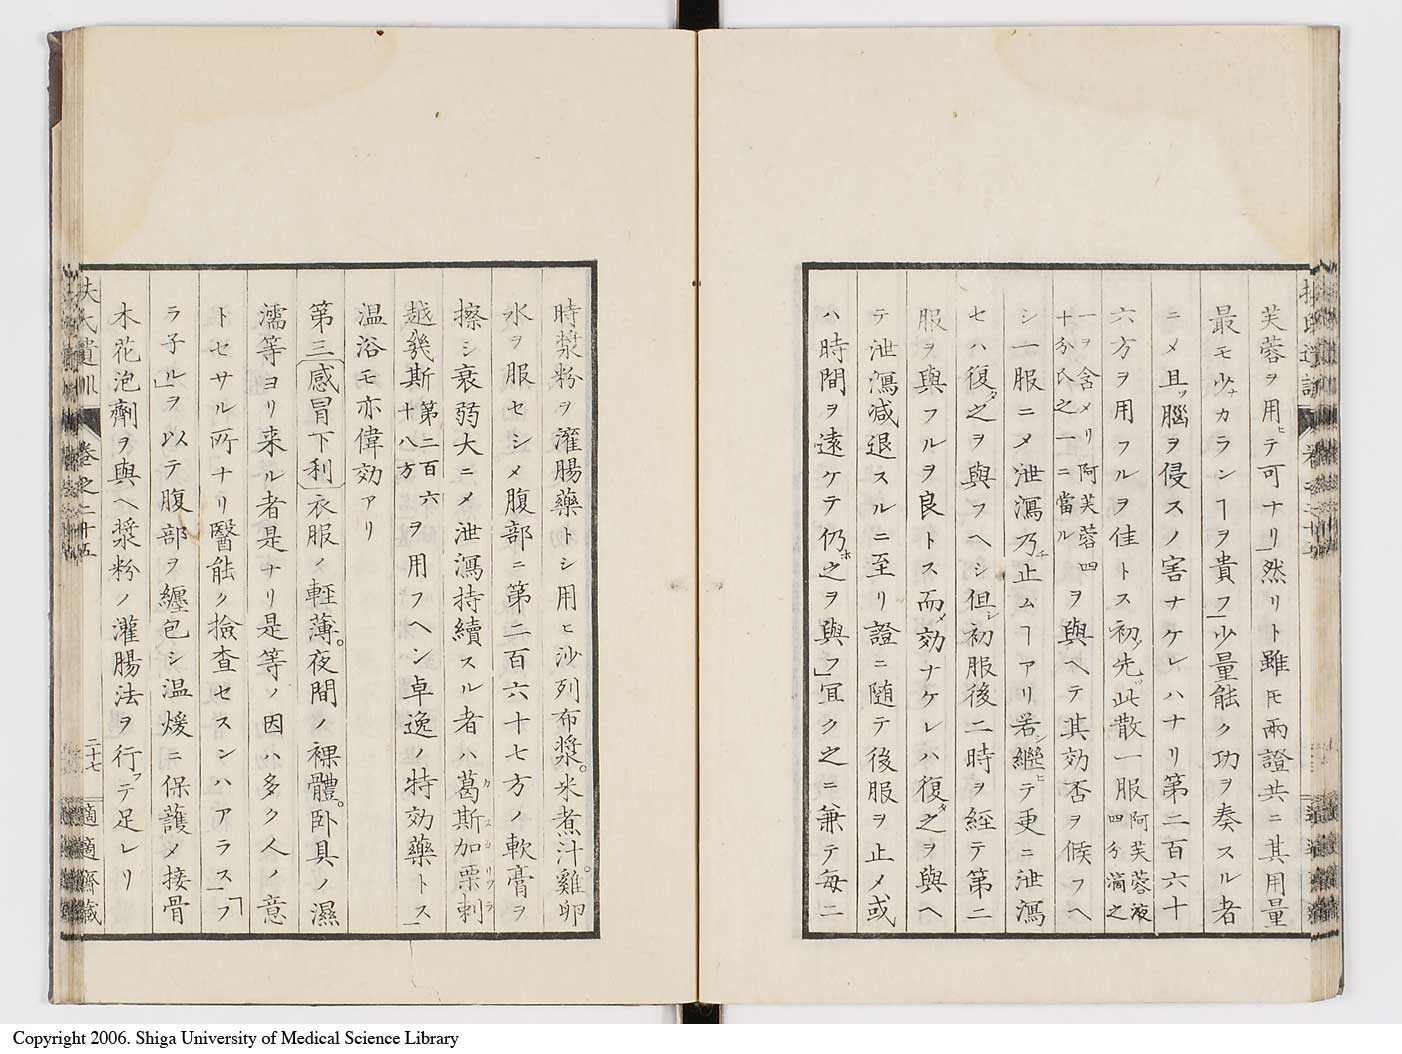 芙蓉ヲ用ヒテ可ナリ」然リト雖𪜈兩證共ニ其用量
最モ少ナカランヿヲ貴フ」少量能ク功ヲ奏スル者
ニメ且ツ腦ヲ侵スノ害ナケレハナリ第二百六十
六方ヲ用フルヲ佳トス初ノ先ツ此散一服阿芙蓉液四分滴之
一ヲ含メリ阿芙蓉四十分氏之一ニ當ルヲ與ヘテ其効否ヲ候フヘ
シ一服ニメ泄瀉乃チ止ムヿアリ若シ繼ヒテ更ニ泄瀉
セハ復タ之ヲ與フヘシ但シ初服後二時ヲ經テ第二
服ヲ與フルヲ良トス而メ効ナケレハ復タ之ヲ與ヘ
テ泄瀉減退スルニ至リ證ニ随テ後服ヲ止メ或
ハ時間ヲ遠ケテ仍ホ之ヲ與フ」宜ク之ニ兼テ每二
時漿粉ヲ灌腸藥トシ用ヒ沙列布漿。米煮汁。雞卵
水ヲ服セシメ腹部ニ第二百六十七方ノ軟膏ヲ
擦シ衰弱大ニメ泄瀉持續スル者ハ葛斯加栗刺カスカリルラ
越幾斯第二百六十八方ヲ用フヘシ卓逸ノ特効藥トス一
温浴モ亦偉効アリ
第三感冒下利衣服ノ輕薄。夜間ノ裸體。卧具ノ濕
濡等ヨリ来ル者是ナリ是等ノ因ハ多ク人ノ意
トセサル所ナリ醫能ク撿查セスンハアラス」「フ
ラ子ル」ヲ以テ腹部ヲ纏包シ温煖ニ保護メ接骨
木花泡劑ヲ與ヘ漿粉ノ灌腸法ヲ行フテ足レリ
扶氏遺訓 卷之二十五 二十七 適適齋藏